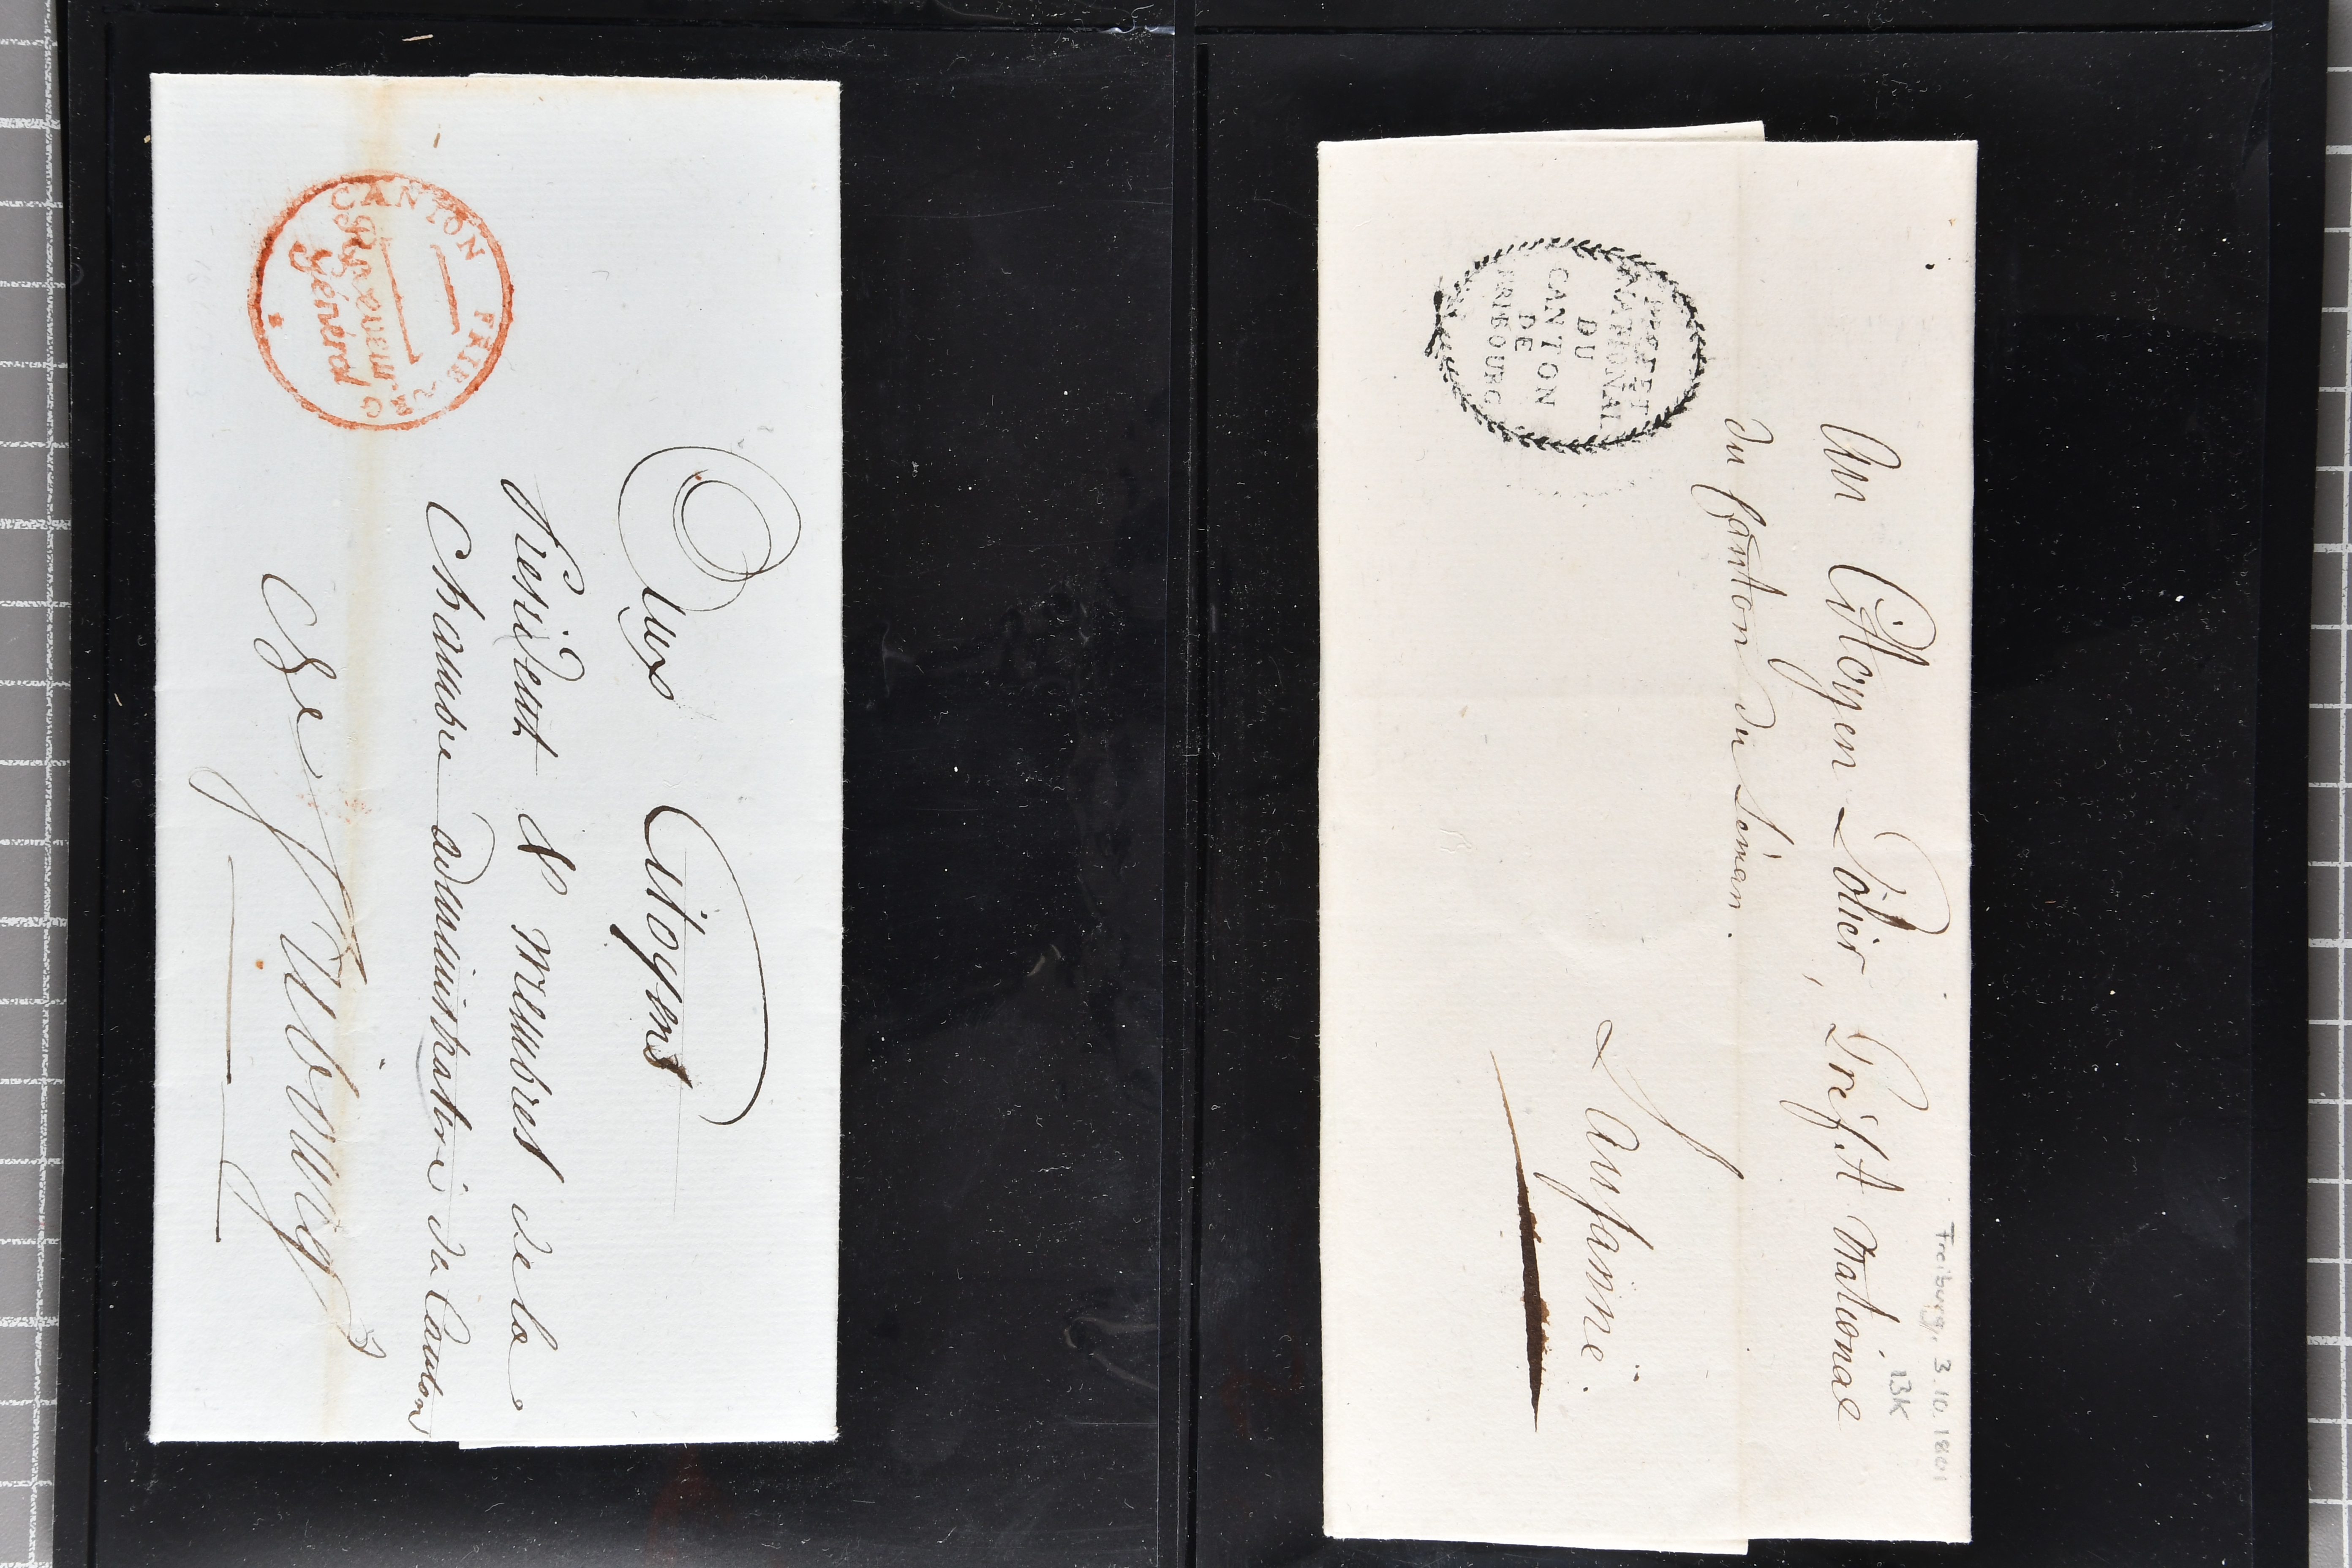 CANTON FRIBOURG
Receveur
général
Aux Citoyens
Président & Membres de la
Chambre administrative du Canton
de fribourg
PREFET
NATIONAL
DU
CANTON
DE
FRIBOURG
Au Citoyen Polier, Préfet National
du Canton du Léman.
Lausanne.
Freiburg, 3.10.1801
13K